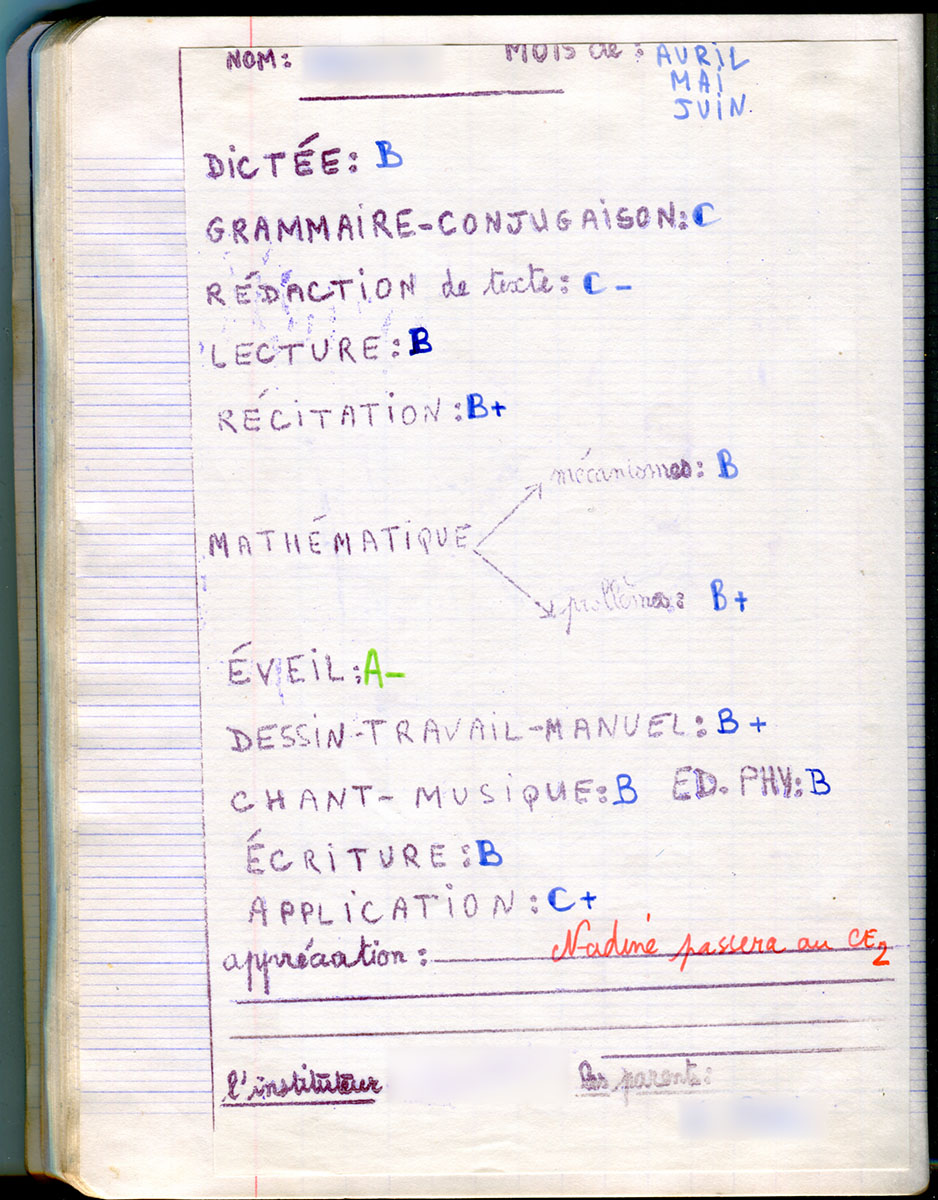 NOM: MOIS de : AVRIL
MAI
JUIN.
DICTÉE: B
GRAMMAIRE-CONJUGAISON: C
RÉDACTION de texte: C -
LECTURE: B
RÉCITATION: B+
mécanismes: B
MATHÉMATIQUE
problèmes: B+
ÉVEIL: A-
DESSIN-TRAVAIL-MANUEL: B+
CHANT-MUSIQUE: B ED. PHY: B
ÉCRITURE: B
APPLICATION: C+
appréciation: Nadine passera au CE2
l'instituteur Les parents: